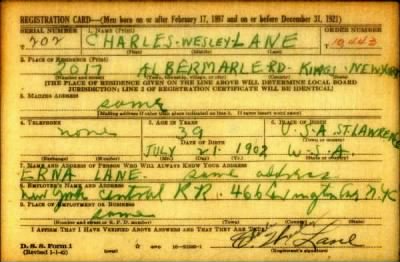 REGISTRATION CARD—(Men born on or after February 17, 1897 and on or before December 31, 1921)
SERIAL NUMBER 1. NAME (Print) ORDER NUMBER
202 CHARLES-WESLEY-LANE 10443
(First) (Middle) (Last)
2. PLACE OF RESIDENCE (Print)
2017 ALBERMARLE RD- KINGS- NEW YORK
(Number and street) (Town, township, village, or city) (County) (State)
[THE PLACE OF RESIDENCE GIVEN ON THE LINE ABOVE WILL DETERMINE LOCAL BOARD
JURISDICTION; LINE 2 OF REGISTRATION CERTIFICATE WILL BE IDENTICAL]
3. MAILING ADDRESS
same
[Mailing address if other than place indicated on line 2. If same insert word same]
4. TELEPHONE 5. AGE IN YEARS 6. PLACE OF BIRTH
none 39 U.S.A ST. LAWRENCE
DATE OF BIRTH (Town or county)
JULY 21 1902 U.S.A.
(Exchange) (Number) (Mo.) (Day) (Yr.) (State or country)
7. NAME AND ADDRESS OF PERSON WHO WILL ALWAYS KNOW YOUR ADDRESS
ERNA LANE. same address
8. EMPLOYER'S NAME AND ADDRESS
New York Central R.R. 466 Lexington Ave N.Y.C
9. PLACE OF EMPLOYMENT OR BUSINESS
same
(Number and street or R. F. D. number) (Town) (County) (State)
I AFFIRM THAT I HAVE VERIFIED ABOVE ANSWERS AND THAT THEY ARE TRUE.
D. S. S. Form 1
(Revised 1-1-42) GPO 16—21630-1 C. W. Lane
(Registrant's signature)